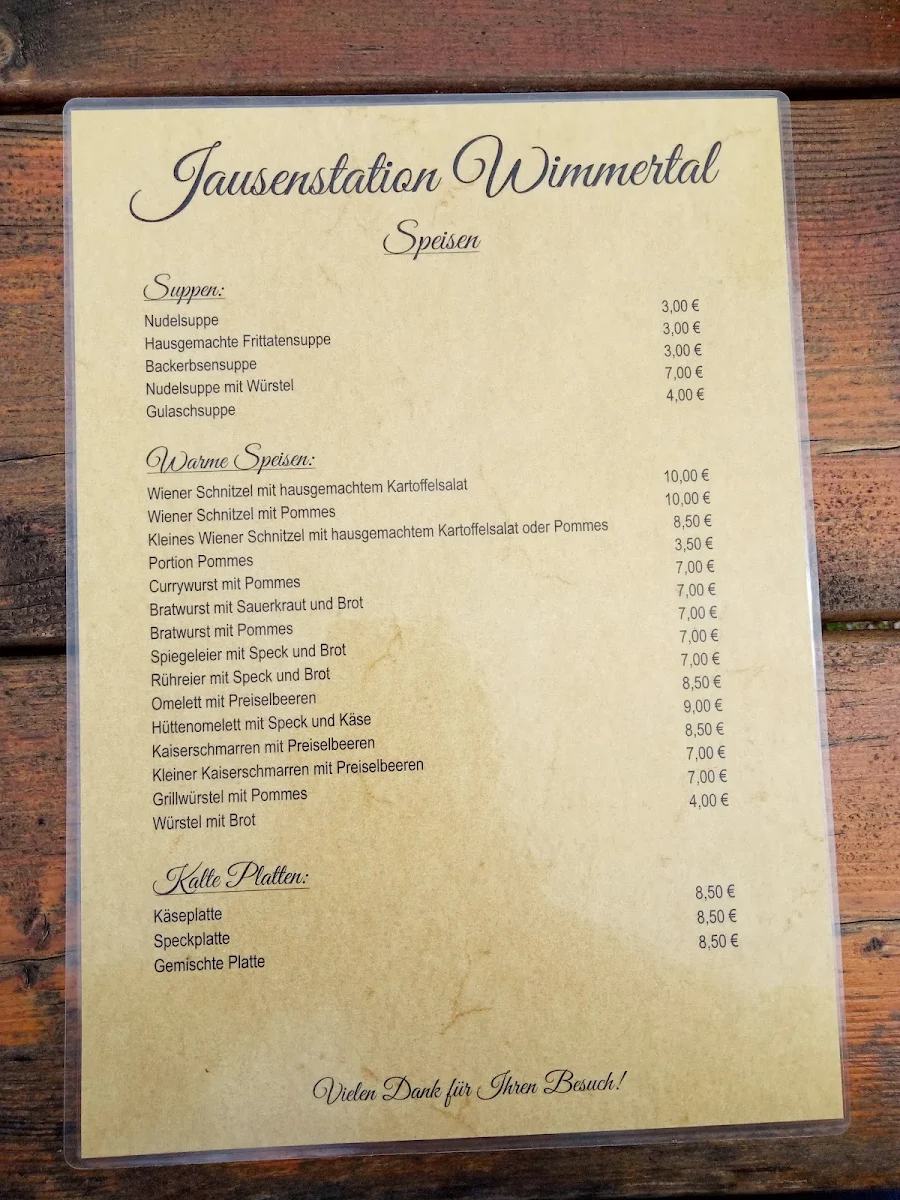 Jausenstation Wimmertal
Speisen
Suppen:
Nudelsuppe 3,00 €
Hausgemachte Frittatensuppe 3,00 €
Backerbsensuppe 3,00 €
Nudelsuppe mit Würstel 7,00 €
Gulaschsuppe 4,00 €
Warme Speisen:
Wiener Schnitzel mit hausgemachtem Kartoffelsalat 10,00 €
Wiener Schnitzel mit Pommes 10,00 €
Kleines Wiener Schnitzel mit hausgemachtem Kartoffelsalat oder Pommes 8,50 €
Portion Pommes 3,50 €
Currywurst mit Pommes 7,00 €
Bratwurst mit Sauerkraut und Brot 7,00 €
Bratwurst mit Pommes 7,00 €
Spiegeleier mit Speck und Brot 7,00 €
Rühreier mit Speck und Brot 7,00 €
Omelett mit Preiselbeeren 8,50 €
Hüttenomelett mit Speck und Käse 9,00 €
Kaiserschmarren mit Preiselbeeren 8,50 €
Kleiner Kaiserschmarren mit Preiselbeeren 7,00 €
Grillwürstel mit Pommes 7,00 €
Würstel mit Brot 4,00 €
Kalte Platten:
Käseplatte 8,50 €
Speckplatte 8,50 €
Gemischte Platte 8,50 €
Vielen Dank für Ihren Besuch!